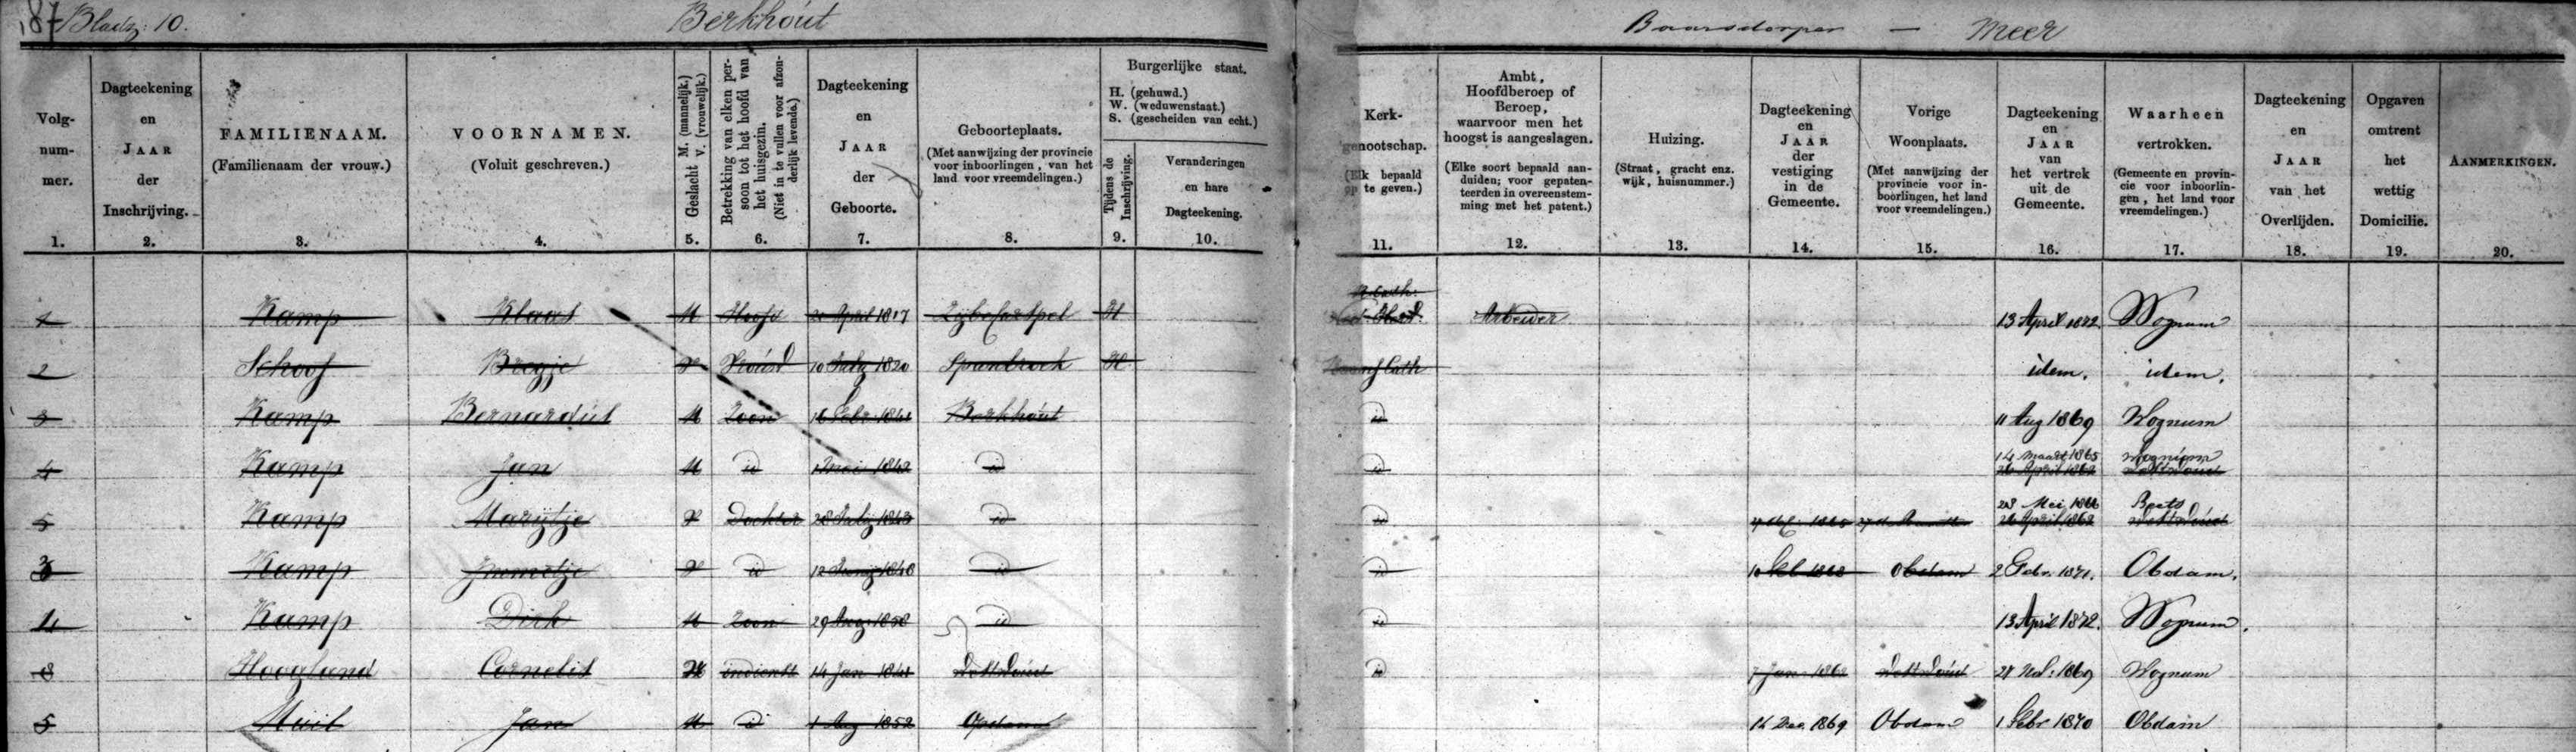 187 Bladz: 10. Berkhout Baarsdorper — Meer
Volgnummer. 1.
Dagteekening en JAAR der Inschrijving. 2.
FAMILIENAAM. (Familienaam der vrouw.) 3.
VOORNAMEN. (Voluit geschreven.) 4.
Geslacht M. (mannelijk.) V. (vrouwelijk.) 5.
Betrekking van elken persoon tot het hoofd van het huisgezin. (Niet in te vullen voor afzonderlijk levende.) 6.
Dagteekening en JAAR der Geboorte. 7.
Geboorteplaats. (Met aanwijzing der provincie voor inboorlingen, van het land voor vreemdelingen.) 8.
Burgerlijke staat.
H. (gehuwd.)
W. (weduwenstaat.)
S. (gescheiden van echt.)
Tijdens de Inschrijving. 9.
Veranderingen en hare Dagteekening. 10.
Kerkgenootschap. (Elk bepaald op te geven.) 11.
Ambt, Hoofdberoep of Beroep, waarvoor men het hoogst is aangeslagen. (Elke soort bepaald aanduiden; voor gepatenteerden in overeenstemming met het patent.) 12.
Huizing. (Straat, gracht enz. wijk, huisnummer.) 13.
Dagteekening en JAAR der vestiging in de Gemeente. 14.
Vorige Woonplaats. (Met aanwijzing der provincie voor inboorlingen, het land voor vreemdelingen.) 15.
Dagteekening en JAAR van het vertrek uit de Gemeente. 16.
Waarheen vertrokken. (Gemeente en provincie voor inboorlingen, het land voor vreemdelingen.) 17.
Dagteekening en JAAR van het Overlijden. 18.
Opgaven omtrent het wettig Domicilie. 19.
AANMERKINGEN. 20.
1 Kamp Klaas M Hoofd 20 April 1817 H Arbeider 13 April 1872. Wognum
2 Schoof Bregje V 10 July 1820 Spanbroek H idem. idem.
3 Kamp Bernardus M Zoon 16 Febr 1841 Berkhout id 11 Aug 1869 Wognum
4 Kamp Jan M id Mei 1842 id id 14 Maart 1865 Wognum
26 April 1862
5 Kamp Marijtje V Dochter 28 July 1843 id id 23 Mei 1866 Beets
26 April 1862
3 Kamp V id 12 1848 id id Obdam 2 Febr. 1871. Obdam.
4 Kamp Dirk M Zoon 29 Aug 1858 id id 13 April 1872. Wognum.
8 Hoogland Cornelis M 14 Jan 1841 id 7 Jan 1862 24 Nov: 1869 Wognum
5 Jan M id 1 Aug 1852 Opdam 14 Dec. 1869 Obdam 1 Febr 1870 Obdam